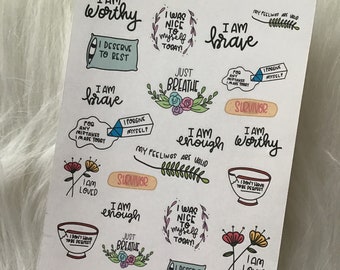 I AM
worthy
I WAS
NICE TO
myself
TODAY!
I AM
brave
MY FEELINGS ARE VALID
I DESERVE
TO REST
I AM
brave
JUST
BREATHE
FOR
ANY
MISTAKES
I MADE TODAY
I FORGIVE
MYSELF
SURVIVOR
FOR
ANY
MISTAKES
I MADE TODAY
I FORGIVE
MYSELF
I AM
enough
I AM
worthy
MY FEELINGS ARE VALID
I AM
LOVED
SURVIVOR
I DON'T HAVE
TO BE PERFECT
I AM
enough
I WAS
NICE TO
myself
TODAY!
I DON'T HAVE
TO BE PERFECT
JUST
BREATHE
I AM
LOVED
I DESERVE